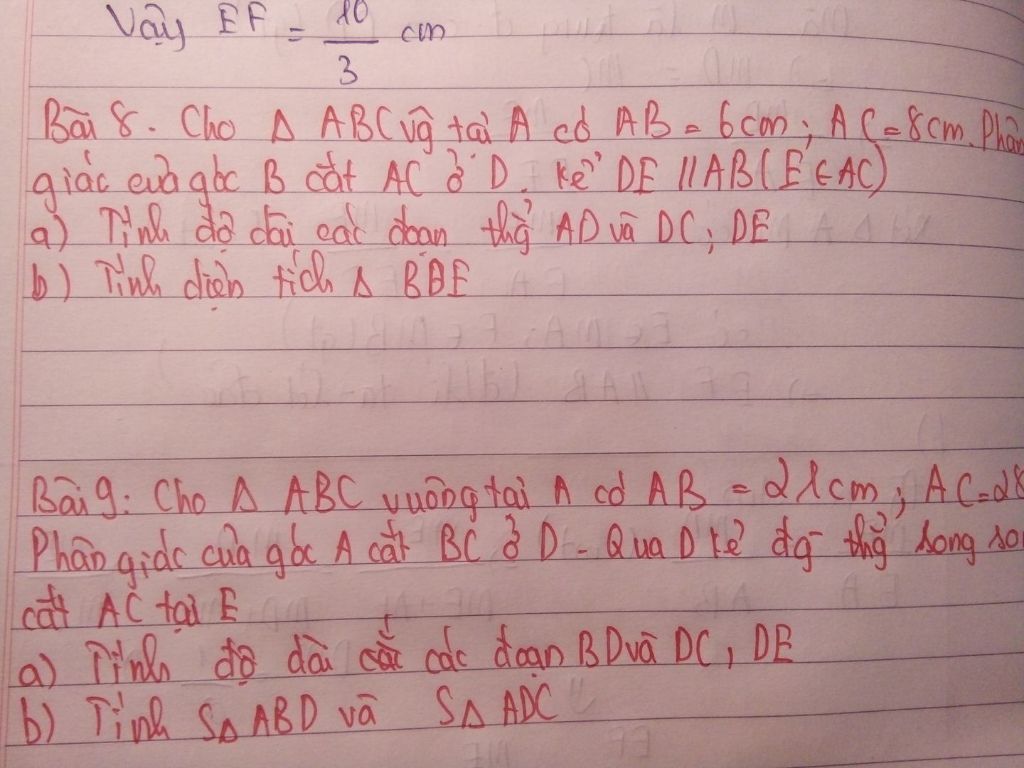 Vậy EF = 10/3 cm
Bài 8. Cho Δ ABC vg tại A có AB = 6cm; AC = 8cm. Phân
giác của góc B cắt AC ở D. Kẻ DE // AB (E ∈ AC)
a) Tính độ dài các đoạn thẳ AD và DC; DE
b) Tính diện tích Δ BDE
Bài 9: Cho Δ ABC vuông tại A có AB = 21cm; AC = 28
Phân giác của góc A cắt BC ở D - Qua D kẻ đg thẳ song so
cắt AC tại E
a) Tính độ dài các đoạn BD và DC, DE
b) Tính SΔ ABD và SΔ ADC